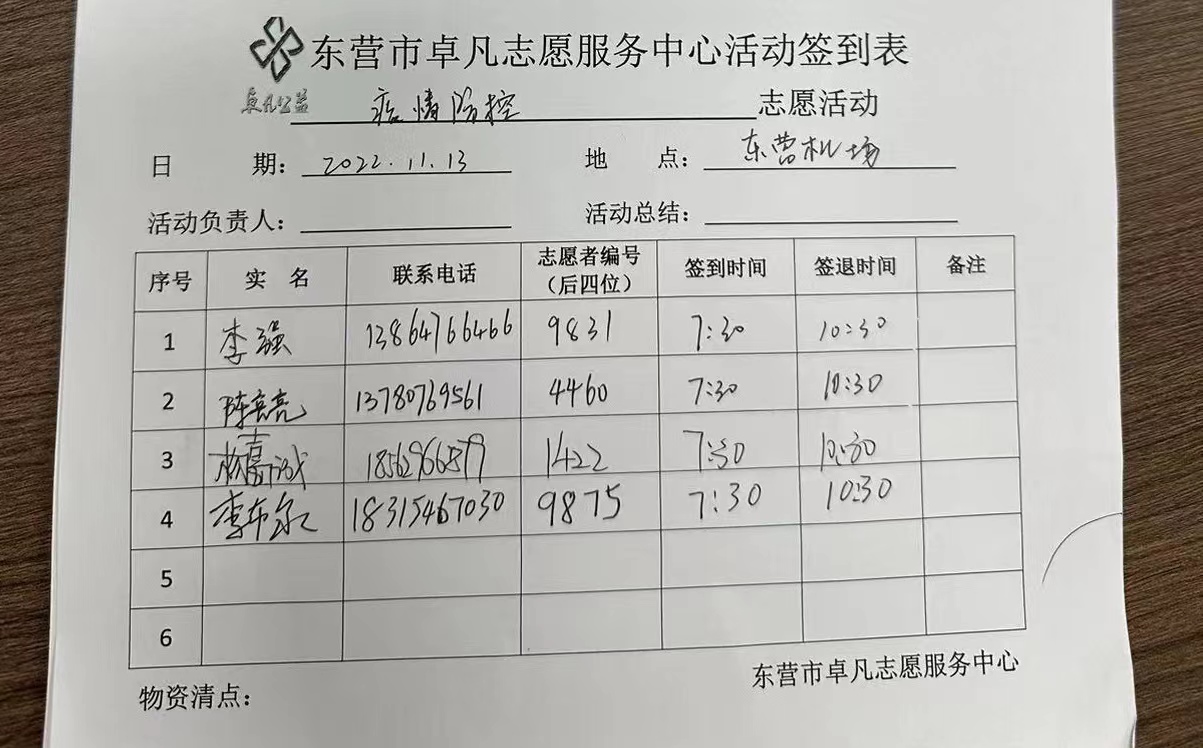 东营市卓凡志愿服务中心活动签到表
卓凡公益 疫情防控 志愿活动
日 期： 2022.11.13 地 点： 东营机场
活动负责人： 活动总结：
序号 实 名 联系电话 志愿者编号（后四位） 签到时间 签退时间 备注
1 李强 13864766466 9831 7:30 10:30
2 陈亮亮 13780769561 4460 7:30 10:30
3 1422 7:30 10:30
4 18315467030 9875 7:30 10:30
5
6
物资清点： 东营市卓凡志愿服务中心